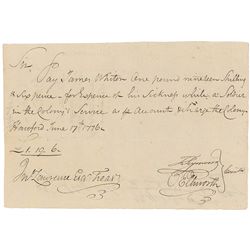 Sir
Pay James Whiton One pound nineteen Shilling
& Six pence - for Expence of his Sickness while a Soldier
in the Colony's Service as pr Account & Charge the Colony
Hartford June 17th 1776
£1.19.6
Jno Lawrence Esqr Treasr
T Seymour
O Ellsworth
Comtee